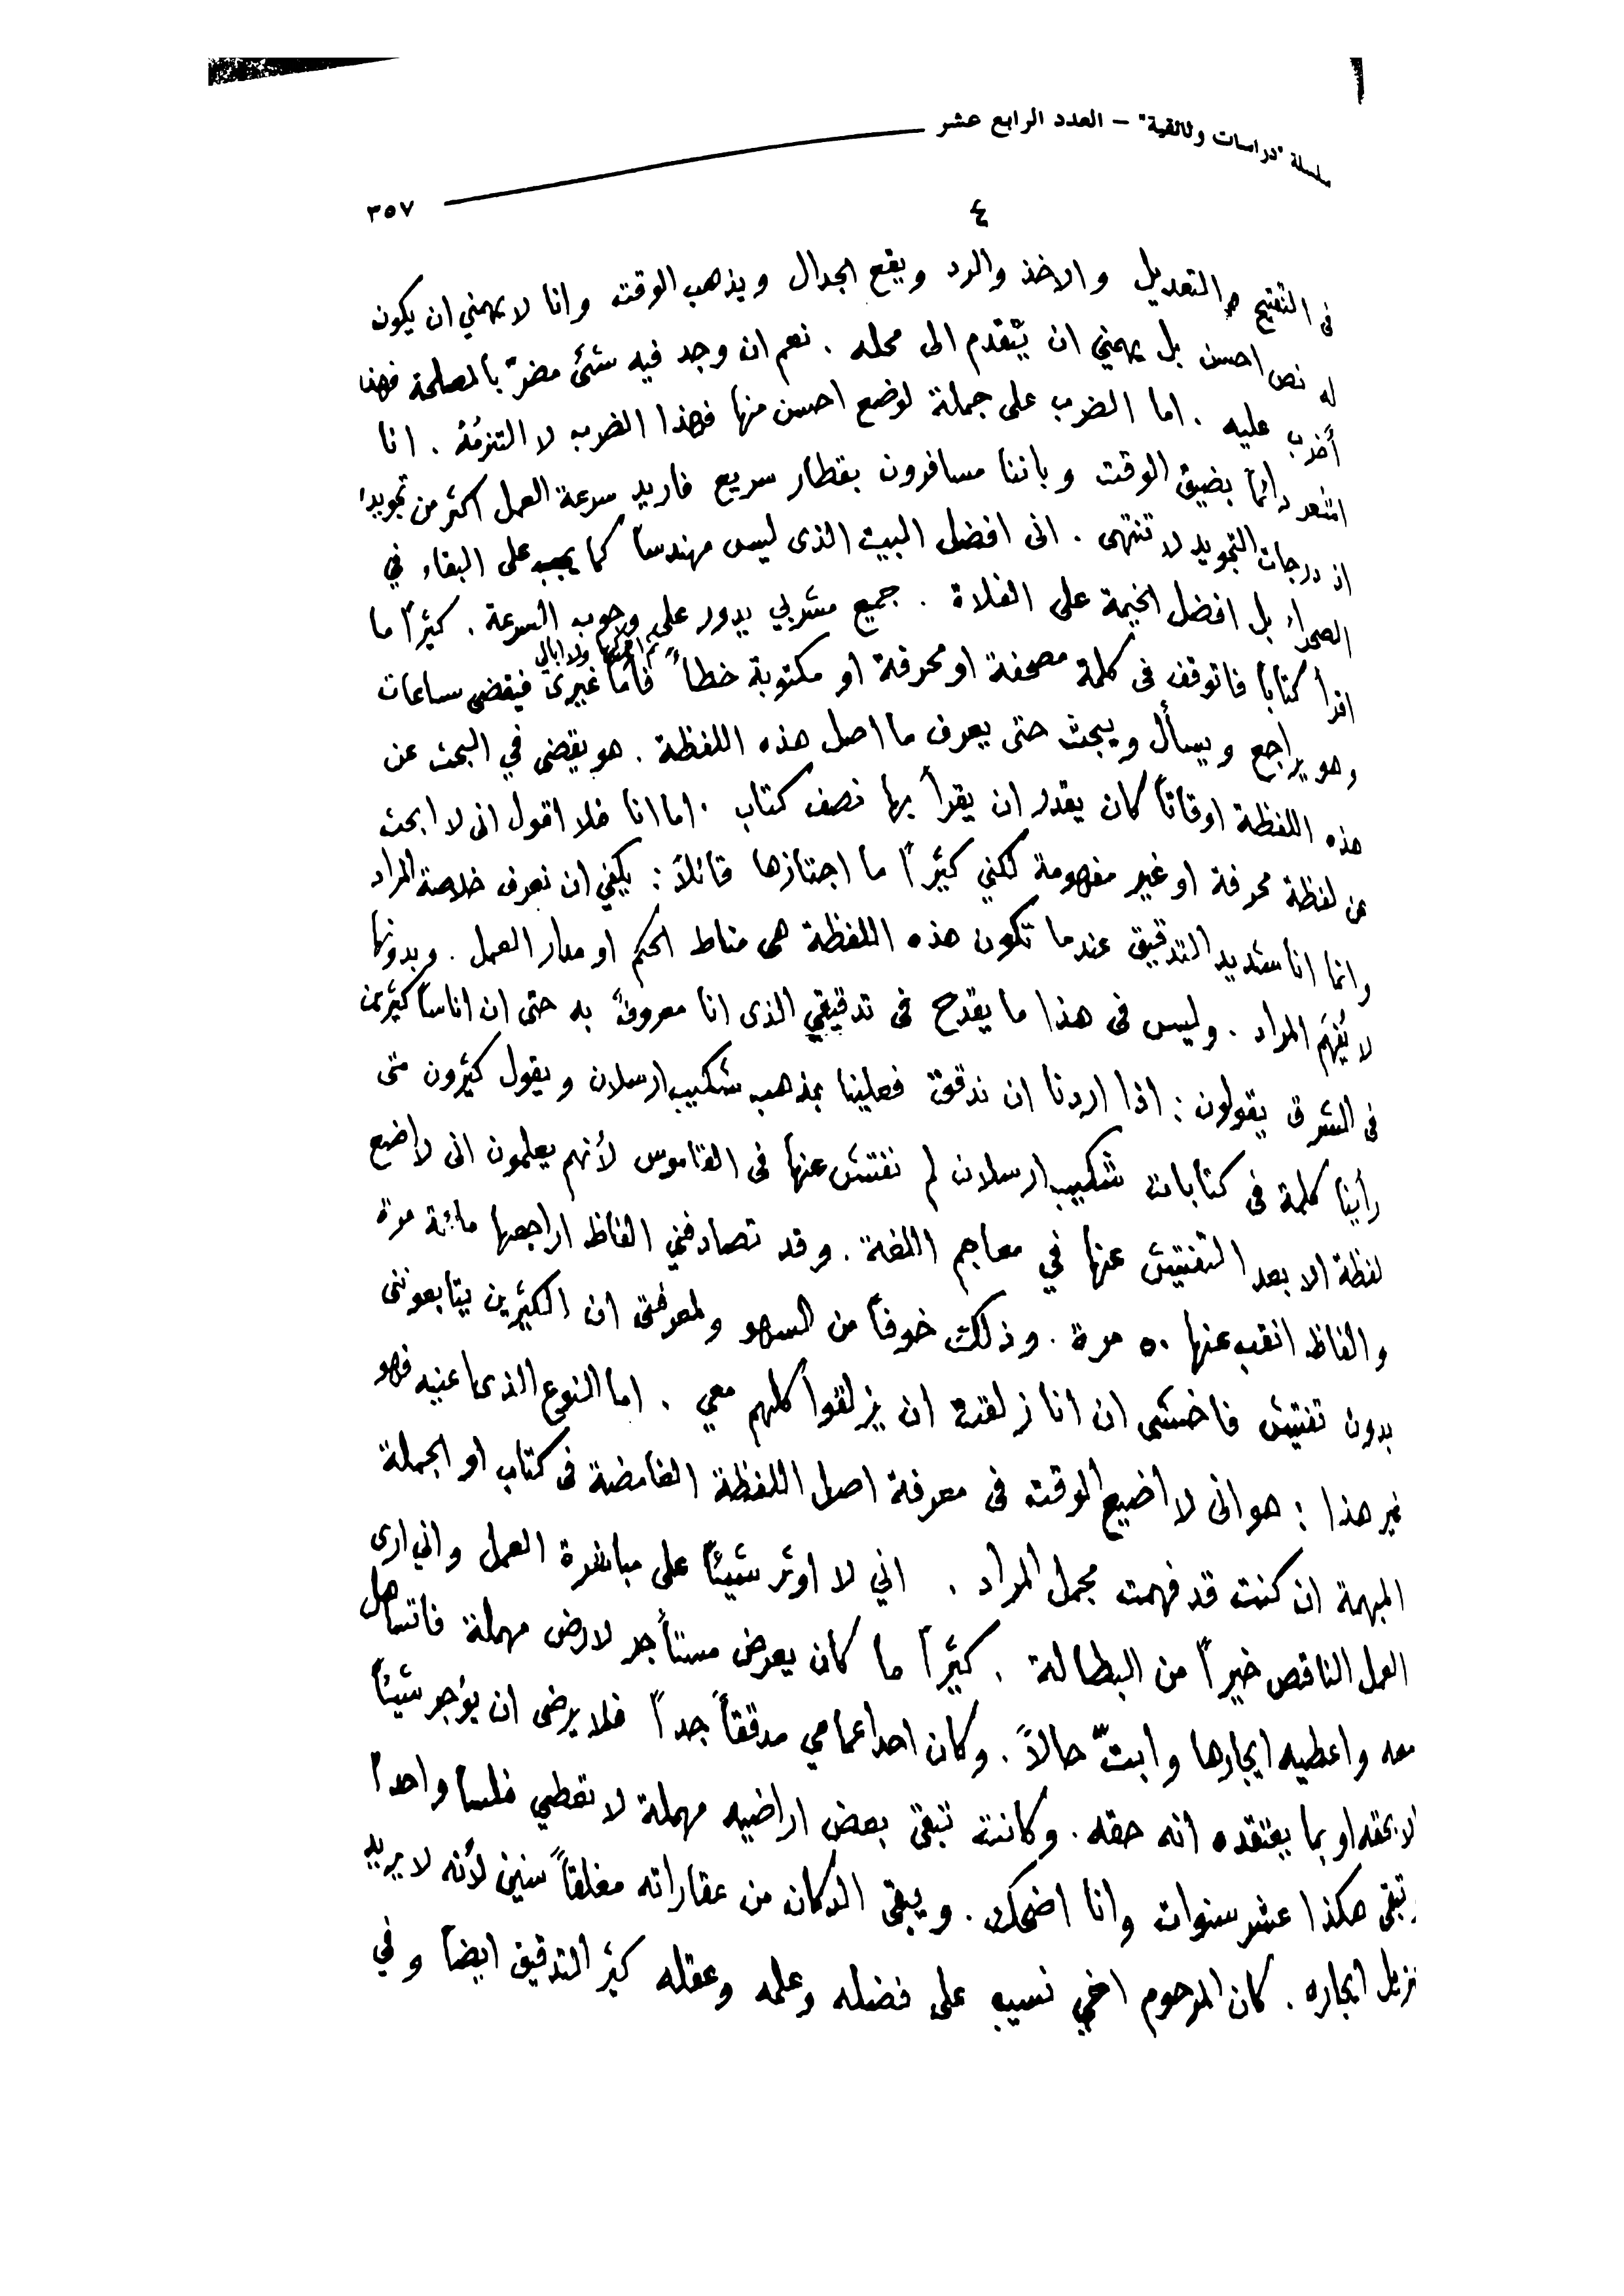 سلسلة "دراسات وثائقية" – العدد الرابع عشر
٣٥٧
٤
في التنقيح والتعديل والاخذ والرد ويقع الجدال ويذهب الوقت وانا لا يهمني ان يكون
له نص احسن بل يهمني ان يتقدم الى محله . نعم ان وجد فيه شئ مضرّ بالمصلحة فهذا
أضرب عليه . اما الضرب على جملة لوضع احسن منها فهذا الضرب لا التزمُهُ . انا
اشعر دائماً بضيق الوقت وباننا مسافرون بقطار سريع فاريد سرعة العمل اكثر من تجويده
اذ درجات التجويد لا تنتهى . انى افضل البيت الذى ليس مهندساً كما يجب على البقاء في
الصحراء بل افضل الخيمة على الفلاة . جميع مشربي يدور على وجوب السرعة . كثيراً ما
اقرأ كتاباً فاتوقف فى كلمة مصحفة او محرفة او مكتوبة خطأً ثم ولا ابالي فأما غيرى فيقضى ساعات
وهو يراجع ويسأل ويبحث حتى يعرف ما اصل هذه اللفظة . هو يقضى في البحث عن
هذه اللفظة اوقاتاً كان يقدر ان يقرأ بها نصف كتاب . اما انا فلا اقول انى لا ابحث
عن لفظة محرفة او غير مفهومة لكني كثيراً ما اجتازها قائلاً : يكفي ان نعرف خلاصة المراد
وانما انا شديد التدقيق عندما تكون هذه اللفظة هى مناط الحكم او مدار العمل . وبدونها
لا يُفهَم المراد . وليس فى هذا ما يقدح فى تدقيقي الذى انا معروفٌ به حتى ان اناساً كثيرين
فى الشرق يقولون : اذا اردنا ان ندقق فعلينا بمذهب شكيب ارسلان ويقول كثيرون متى
رأينا كلمة فى كتابات شكيب ارسلان لم نفتش عنها فى القاموس لأنهم يعلمون انى لا اضع
لفظة الا بعد التفتيش عنها في معاجم اللغة . وقد تصادفني الفاظ اراجعها مائة مرة
والفاظ انقب عنها ٥٠ مرة . وذلك خوفاً من السهو ولمعرفتى ان الكثيرين يتابعوننى
بدون تفتيش فاخشى ان انا زلقت ان يزلقوا كلهم معي . اما النوع الذى اعنيه فهو
غير هذا : هو انى لا اضيع الوقت فى معرفة اصل اللفظة الغامضة فى كتاب او الجملة
المبهمة ان كنت قد فهمت مجمل المراد . اني لا اوثر شيئاً على مباشرة العمل واني ارى
العمل الناقص خيراً من البطالة . كثيراً ما كان يعرض مستأجر لارض مهملة فاتساهل
معه واعطيه ايجارها وابتّ حالاً . وكان احد اعمامي مدققاً جداً فلا يرضى ان يؤجر شيئاً
الا بحقه او بما يعتقده انه حقه . وكانت تبقى بعض اراضيه مهملة لا تعطي فلسا واحداً
وتبقى هكذا عشر سنوات وانا اضحك . ويبقى الدكان من عقاراته مغلقاً سنين لأنه لا يريد
تنزيل ايجاره . كان المرحوم اخي نسيب على فضله وعلمه وعقله كثير التدقيق ايضاً وفي